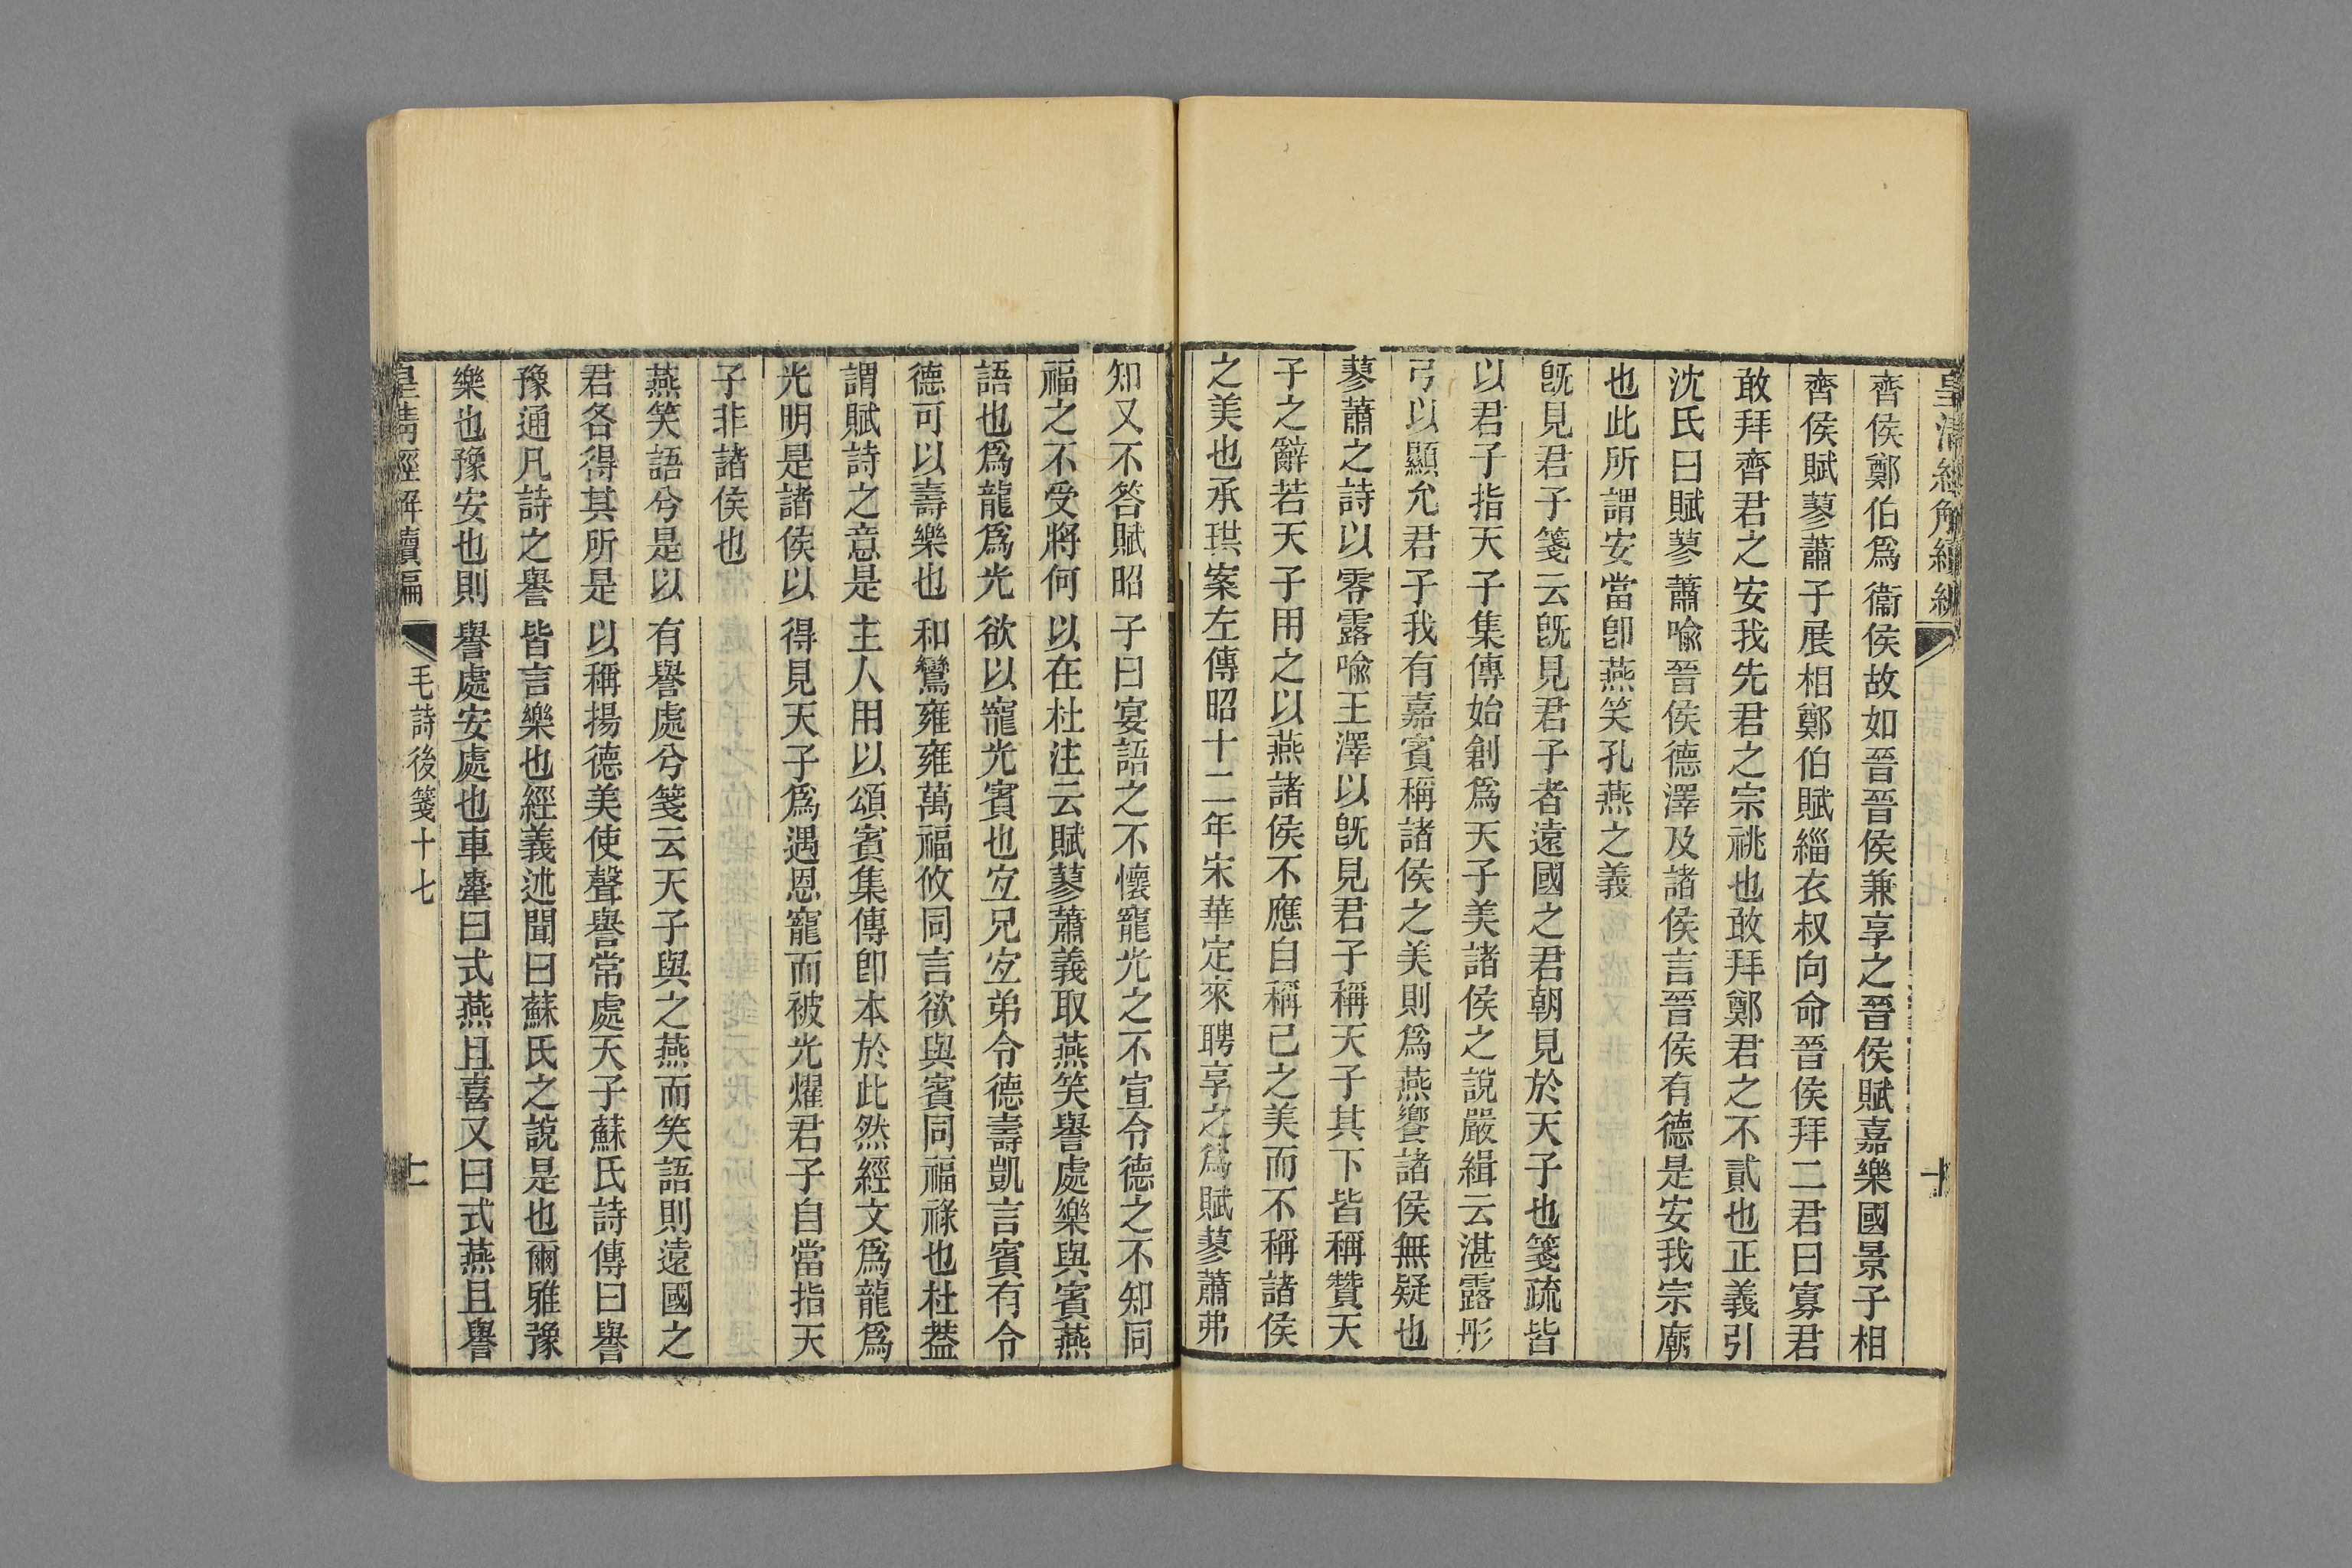 齊侯鄭伯爲衞侯故如晉晉侯兼享之晉侯賦嘉樂國景子相
齊侯賦蓼蕭子展相鄭伯賦緇衣叔向命晉侯拜二君曰寡君
敢拜齊君之安我先君之宗祧也敢拜鄭君之不貳也正義引
沈氏曰賦蓼蕭喻晉侯德澤及諸侯言晉侯有德是安我宗廟
也此所謂安當卽燕笑孔燕之義
旣見君子箋云旣見君子者遠國之君朝見於天子也箋疏皆
以君子指天子集傳始創爲天子美諸侯之說嚴緝云湛露彤
弓以顯允君子我有嘉賓稱諸侯之美則爲燕饗諸侯無疑也
蓼蕭之詩以零露喻王澤以旣見君子稱天子其下皆稱贊天
子之辭若天子用之以燕諸侯不應自稱己之美而不稱諸侯
之美也承珙案左傳昭十二年宋華定來聘享之爲賦蓼蕭弗
知又不答賦昭子曰宴語之不懷寵光之不宣令德之不知同
福之不受將何以在杜注云賦蓼蕭義取燕笑譽處樂與賓燕
語也爲龍爲光欲以寵光賓也宜兄宜弟令德壽凱言賓有令
德可以壽樂也和鸞雍雍萬福攸同言欲與賓同福祿也杜葢
謂賦詩之意是主人用以頌賓集傳卽本於此然經文爲龍爲
光明是諸侯以得見天子爲遇恩寵而被光燿君子自當指天
子非諸侯也
燕笑語兮是以有譽處兮箋云天子與之燕而笑語則遠國之
君各得其所是以稱揚德美使聲譽常處天子蘇氏詩傳曰譽
豫通凡詩之譽皆言樂也經義述聞曰蘇氏之說是也爾雅豫
樂也豫安也則譽處安處也車舝曰式燕且喜又曰式燕且譽
皇清經解續編
毛詩後箋十七